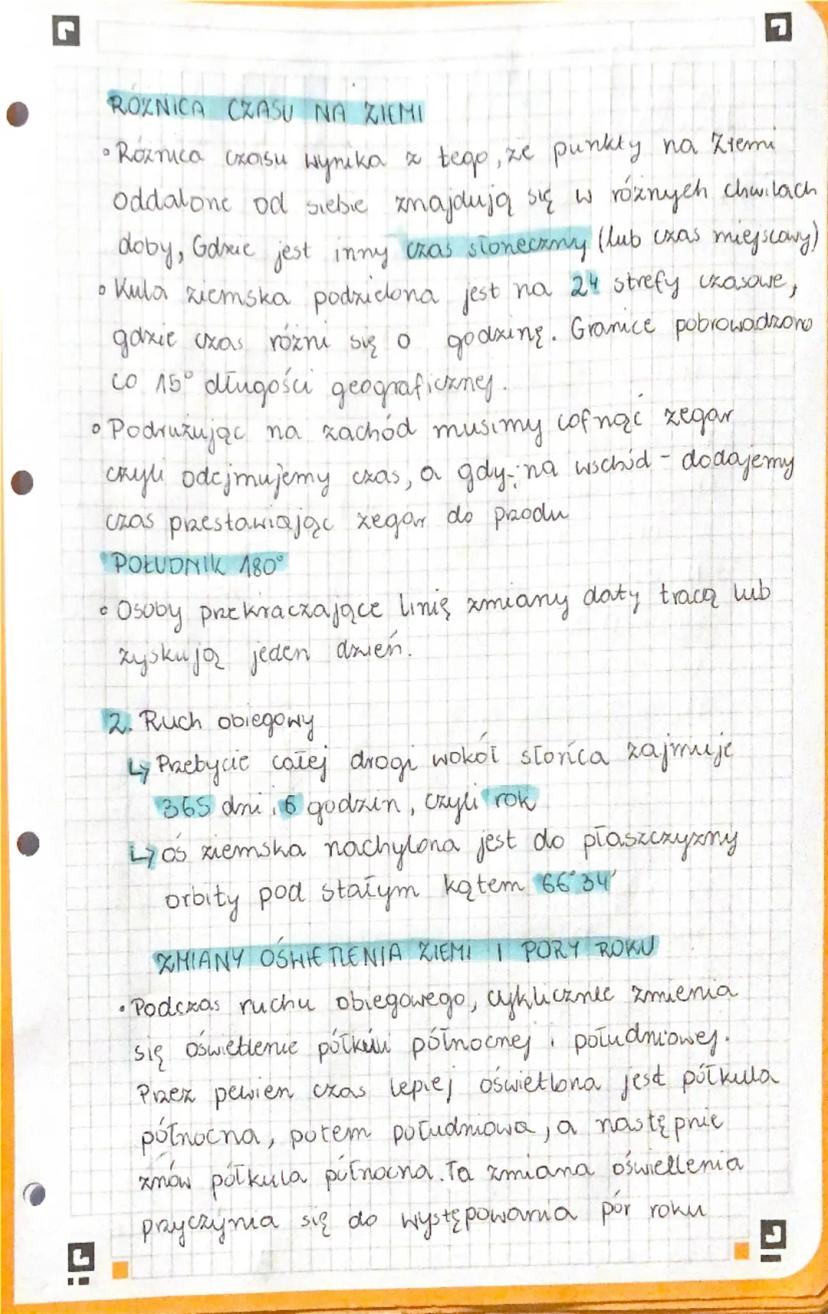 RÓŻNICA CZASU NA ZIEMI
° Różnica czasu wynika z tego, że punkty na Ziemi
oddalone od siebie znajdują się w różnych chwilach
doby, Gdzie jest inny czas słoneczny (lub czas miejscowy)
° Kula ziemska podzielona jest na 24 strefy czasowe,
gdzie czas różni się o godzinę. Granice pobrowadzono
co 15° długości geograficznej.
° Podrużując na zachód musimy cofnąć zegar
czyli odejmujemy czas, a gdy na wschód - dodajemy
czas przestawiając zegar do przodu
POŁUDNIK 180°
° Osoby przekraczające linię zmiany daty tracą lub
zyskują jeden dzień.
2. Ruch obiegowy
↳ Przebycie całej drogi wokół słońca zajmuje
365 dni i 6 godzin, czyli rok
↳ oś ziemska nachylona jest do płaszczyzny
orbity pod stałym kątem 66°34'
ZMIANY OŚWIETLENIA ZIEMI I PORY ROKU
• Podczas ruchu obiegowego, cyklicznie zmienia
się oświetlenie półkuli północnej i południowej.
Przez pewien czas lepiej oświetlona jest półkula
północna, potem południowa, a następnie
znów półkula północna. Ta zmiana oświetlenia
przyczynia się do występowania pór roku